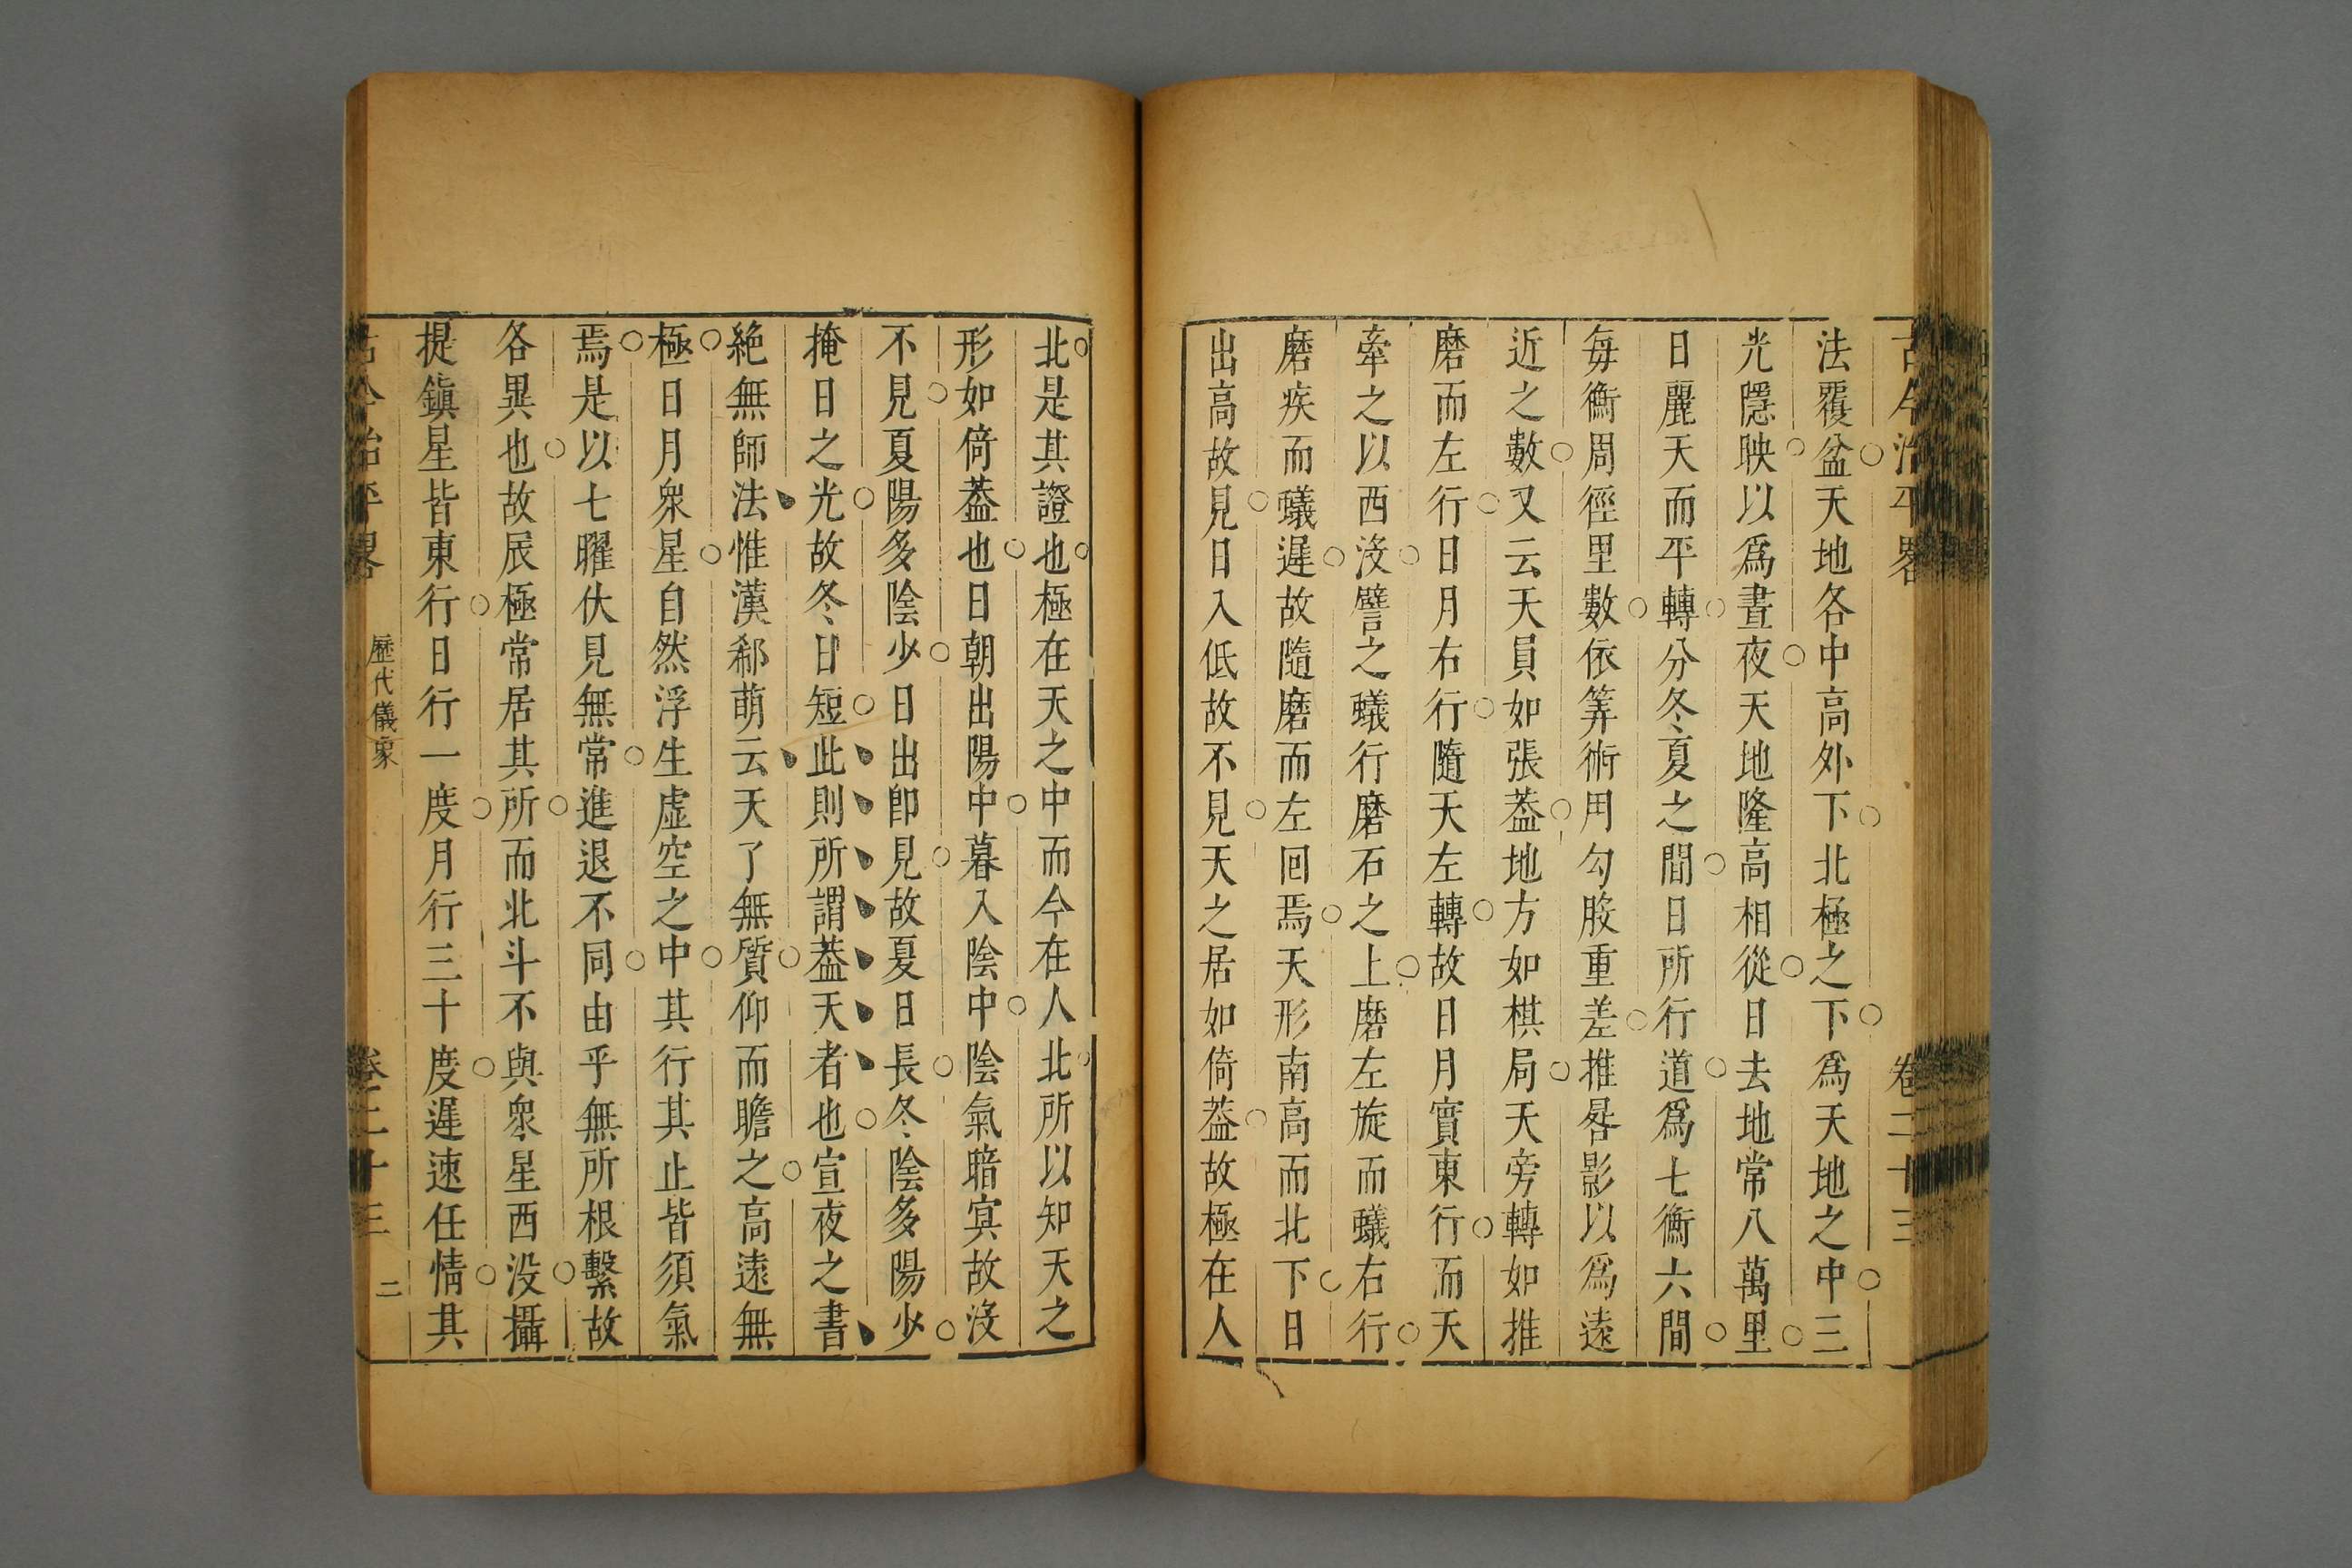 古今治平畧 卷二十三
法覆盆天地各中高外下北極之下爲天地之中三
光隱映以爲晝夜天地隆高相從日去地常八萬里
日麗天而平轉分冬夏之間日所行道爲七衡六間
每衡周徑里數依筭術用勾股重差推晷影以爲遠
近之數又云天員如張葢地方如棋局天旁轉如推
磨而左行日月右行隨天左轉故日月實東行而天
牽之以西沒譬之蟻行磨石之上磨左旋而蟻右行
磨疾而蟻遲故隨磨而左回焉天形南高而北下日
出高故見日入低故不見天之居如倚葢故極在人
北是其證也極在天之中而今在人北所以知天之
形如倚葢也日朝出陽中暮入陰中陰氣暗冥故沒
不見夏陽多陰少日出卽見故夏日長冬陰多陽少
掩日之光故冬日短此則所謂葢天者也宣夜之書
絶無師法惟漢郄萌云天了無質仰而瞻之高遠無
極日月衆星自然浮生虛空之中其行其止皆須氣
焉是以七曜伏見無常進退不同由乎無所根繫故
各異也故辰極常居其所而北斗不與衆星西没攝
提鎭星皆東行日行一度月行三十度遲速任情其
古今治平畧 歷代儀象 卷二十三 二